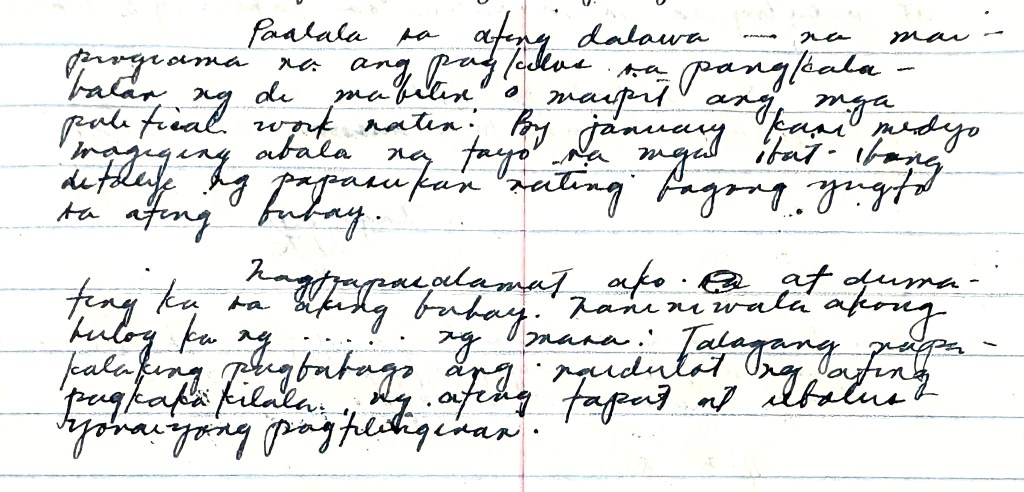 Paalala sa ating dalawa — na mai-
programa na ang pagkilos sa pangkala-
hatan ng di mabitin o maipit ang mga
political work natin. By january kasi medyo
magiging abala na tayo sa mga ibat-ibang
detalye ng papasukan nating bagong yugto
sa ating buhay.
Nagpapasalamat ako at duma-
ting ka sa aking buhay. Naniniwala akong
hulog ka ng ..... ng masa. Talagang napa-
kalaking pagbabago ang naidulot ng ating
pagkakakilala, ng ating tapat at
pagtitinginan.